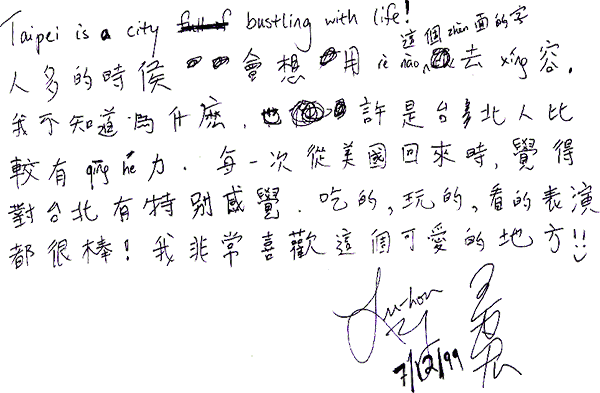 Taipei is a city bustling with life! 這個 zhèn 面的字
人多的時侯會想用 rè nào 去 xíng 容.
我不知道為什麽. 許是台北人比
較有 qīng hé 力. 每一次從美國回來時, 覺得
對台北有特别感覺. 吃的, 玩的, 看的表演
都很棒! 我非常喜歡這個可愛的地方!!
7/12/99